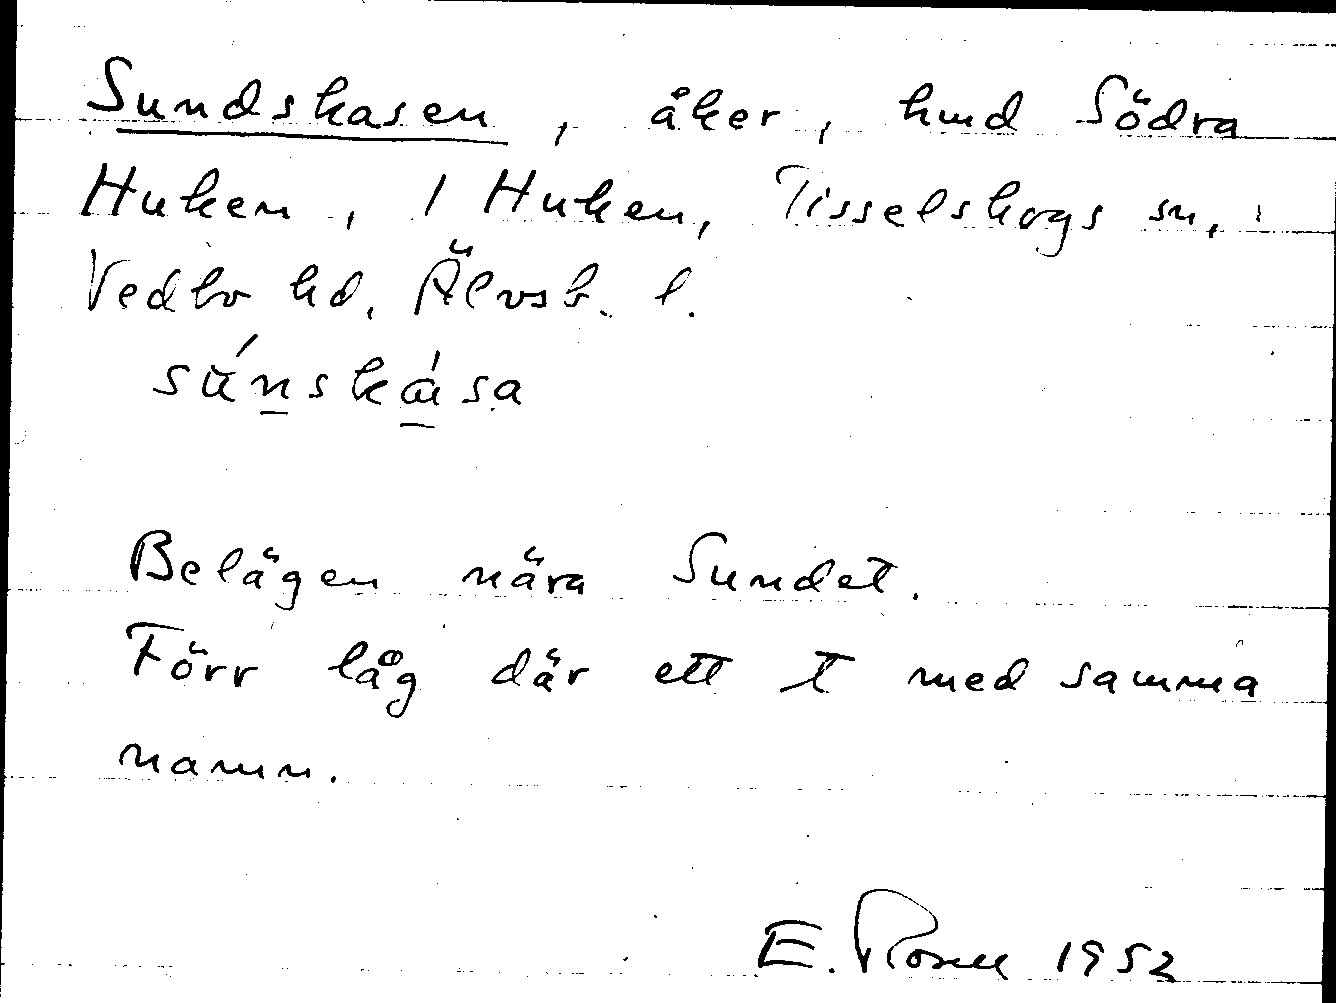 Sundskasen, åker, hmd Södra
Huken, 1 Huken, Tisselskogs sn,
Vedbo hd, Älvsb. l.
sú̈nskása
Belägen nära Sundet.
Förr låg där ett t med samma
namn.
E. Rosell 1952